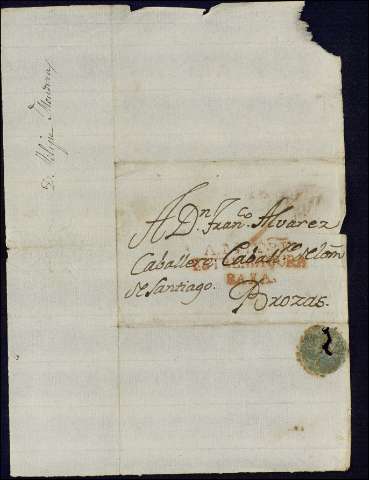 D. Felipe Montoya
A Dn. Franco. Alvarez
Caballero, Caballo. de la orn
de Santiago. Brozas.
ESTREMADURA
BAXA.